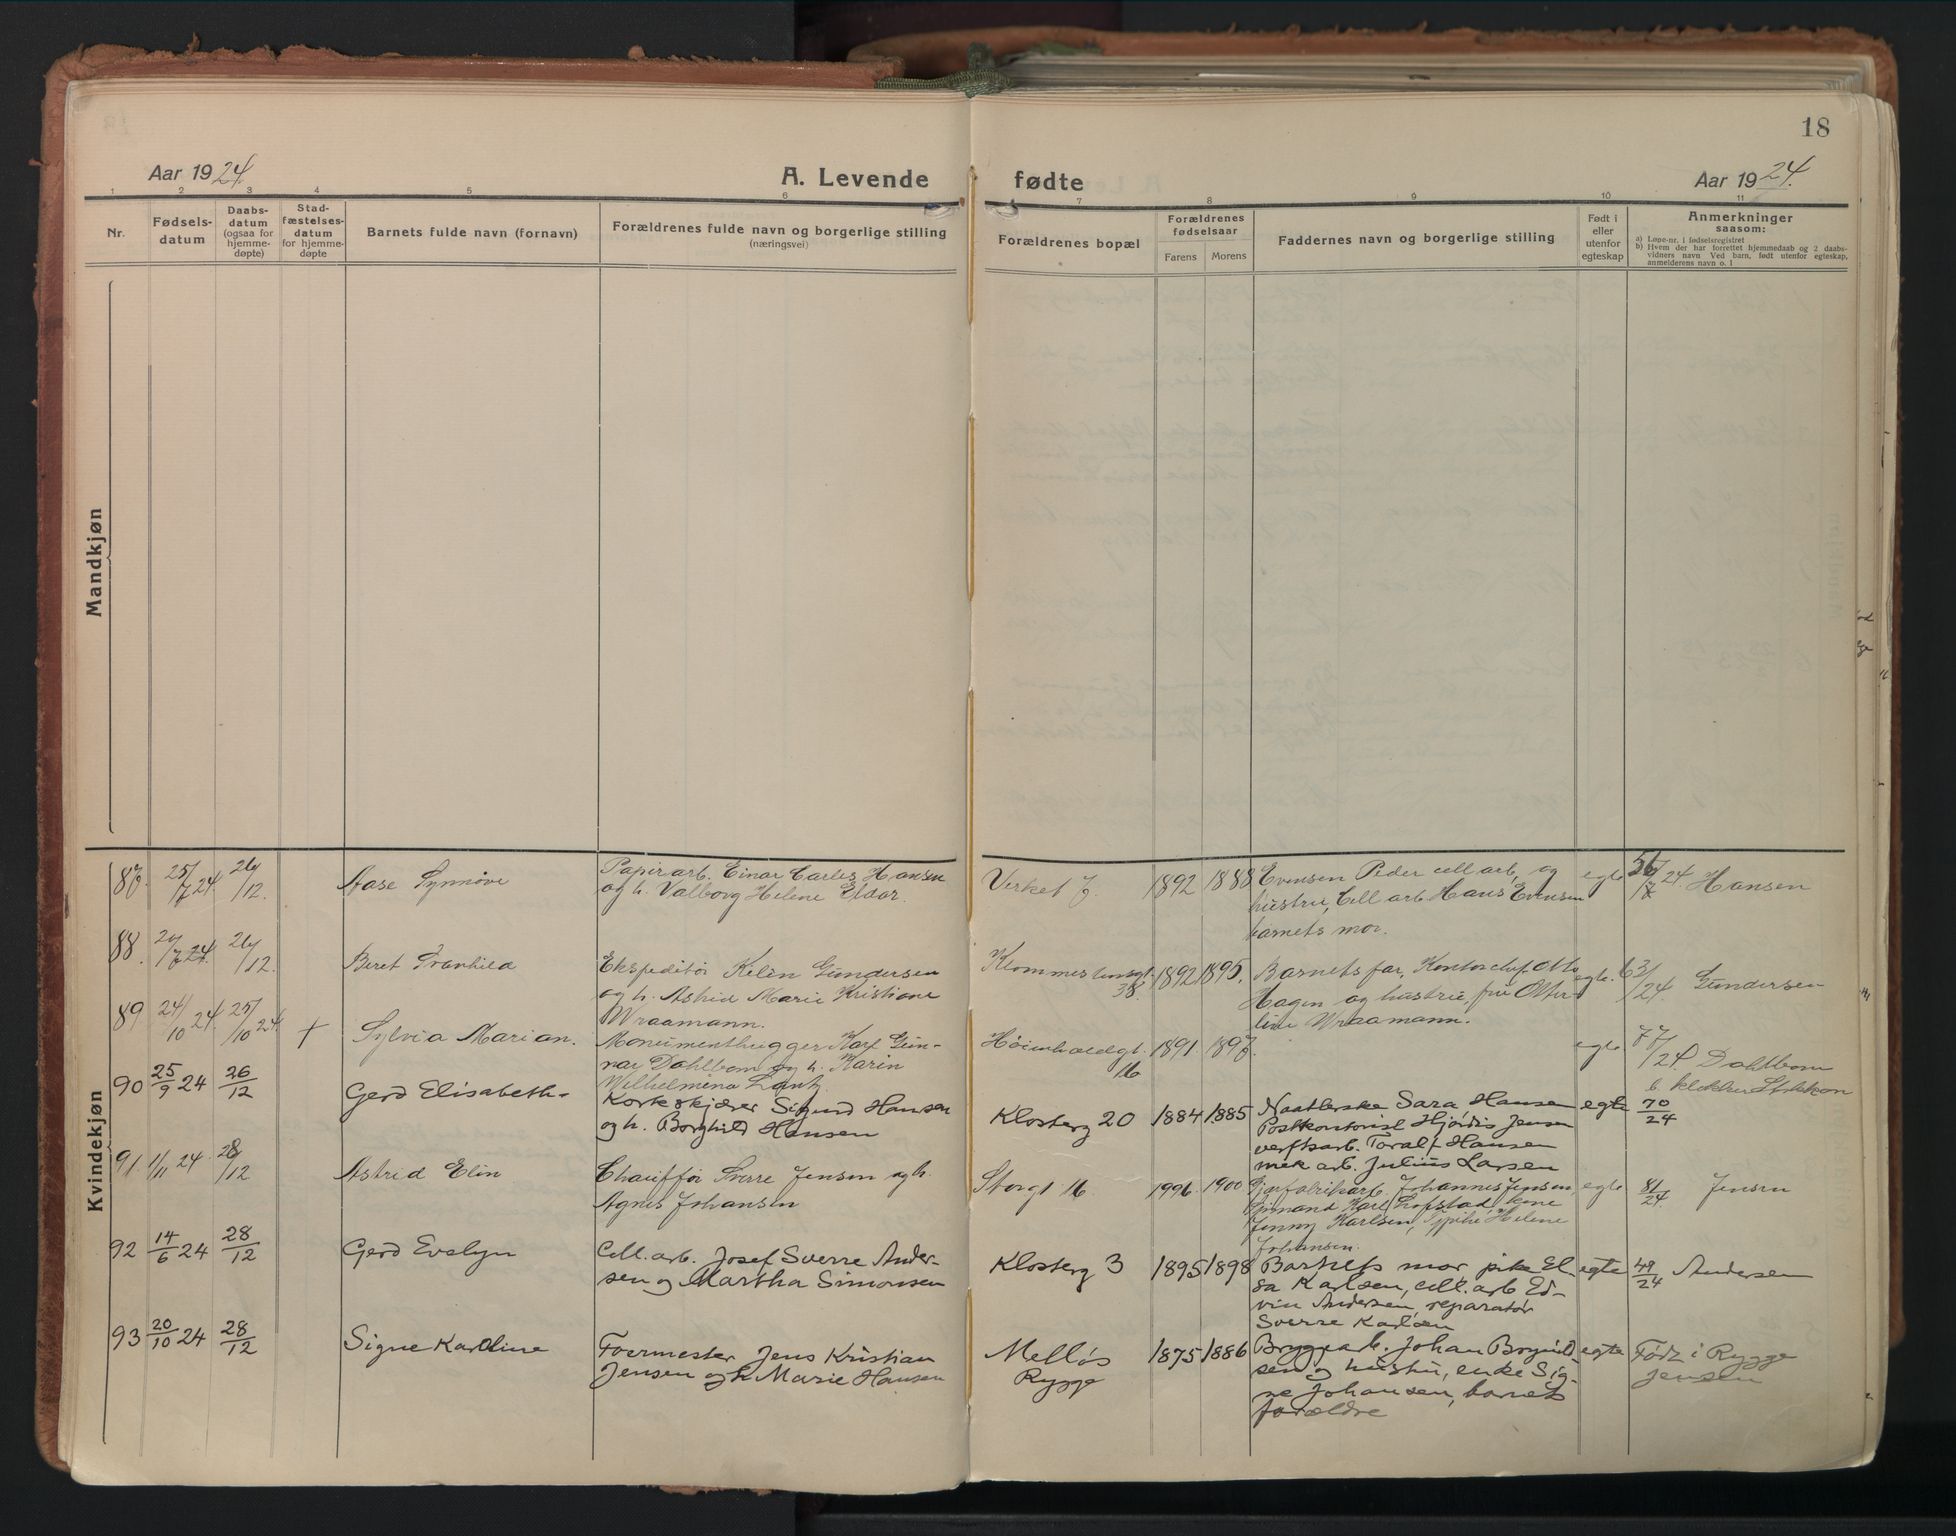 18
Aar 1924.
A. Levende
fødte
Aar 1924.
1 2 3 4 5 6 7 8 9 10 11
Nr.
Fødsels-
datum
Daabs-
datum
(ogsaa for
hjemme-
døpte)
Stad-
fæstelses-
datum
for hjemme-
døpte
Barnets fulde navn (fornavn)
Forældrenes fulde navn og borgerlige stilling
(næringsvei)
Forældrenes bopæl
Forældrenes
fødselsaar
Farens Morens
Faddernes navn og borgerlige stilling
Født i
eller
utenfor
egteskap
Anmerkninger
saasom:
a) Løpe-nr. i fødselsregistret
b) Hvem der har forrettet hjemmedaab og 2 daabs-
vidners navn Ved barn, født utenfor egteskap,
anmelderens navn o. l
Mandkjøn
Kvindekjøn
87. 25/7 24. 26/12.
Aase Synnøve
Papirarb. Einar Carles Hansen
og h. Valborg Helene Eldor.
Verket 7.
1892 1888
Evensen Peder cell arb, og
hustru, Cell arb Hans Evensen
barnets mor.
egte
56/24 Hansen
88. 24. 26/12.
Beret
Ekspeditør Gundersen
og h. Astrid Marie Kristiane
Wraamann.
38.
1892 1895.
Barnets far, Kontorchef Otto
Hagen og hustru, fru
Wraamann.
egte.
63/24. Gundersen
89 24/10 24. 25/10 24. +
Sylvia Marian.
Monumenthugger Karl Gun-
nar Dahlbom og h. Karin
Wilhelmina Lantz.
16
1891 1897.
egte
77/24. Dahlbom
b. klokker
90 25/9 24 26/12
Gerd Elisabeth-
Korkskjærer Sigurd Hansen
og h. Borghild Hansen
Klosterg 20
1884 1885
Sara Hansen
Postkontorist Hjørdis Jensen
verftsarb. Toralf Hansen
mek arb. Julius Larsen
egte
70/24
91. 1/11 24. 28/12
Astrid Elin
Chauffør Sverre Jensen og h.
Agnes Johansen
Storgt 16.
1996. 1900
Johannes Jensen,
sjømand Karl Lofstad, kone
Jenny Karlsen, Helene
Johansen.
egte
81/24. Jensen
92 14/6 24 28/12
Gerd Evelyn
Cell. arb. Josef Sverre Ander-
sen og Martha Simonsen
Klosterg 3
1895 1898
Barnets mor pike El-
sa Karlsen, cell. arb Ed-
vin Andersen, reparatør
Sverre Karlsen
egte
49/24 Andersen
93 20/10 24 28/12
Signe Karoline
Foermester Jens Kristian
Jensen og h. Marie Hansen
Melløs
Rygge
1875 1886
Bryggearb. Johan
sen og hustru, enke Sig-
ne Johansen, barnets
forældre
egte
Født i Rygge
Jensen